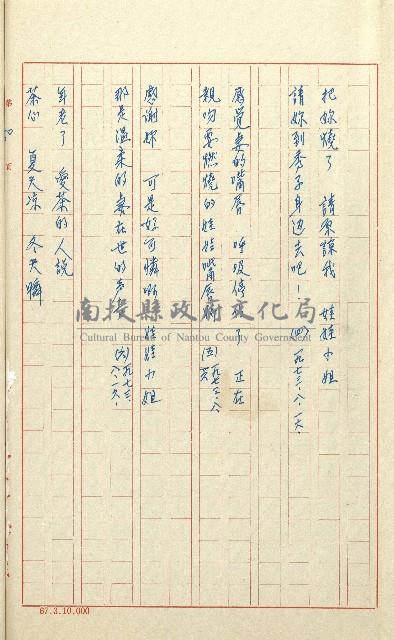 把妳燒了 請原諒我 娃娃小姐
請妳到秀子身边去吧！ (四)一九七三.八.一六.
感覺妻的嘴唇 呼吸停了 正在
親吻要燃燒的娃娃嘴唇 (五)一九七三.八.
感謝妳 可是好可憐啊 娃娃小姐
那是溫柔的妻在世的 (六)一九七三.八.一九.
年老了 愛茶的人說
茶心 夏天涼 冬天
第 頁
南投縣政府文化局
Cultural Bureau of Nantou County Government
67.3.10.000